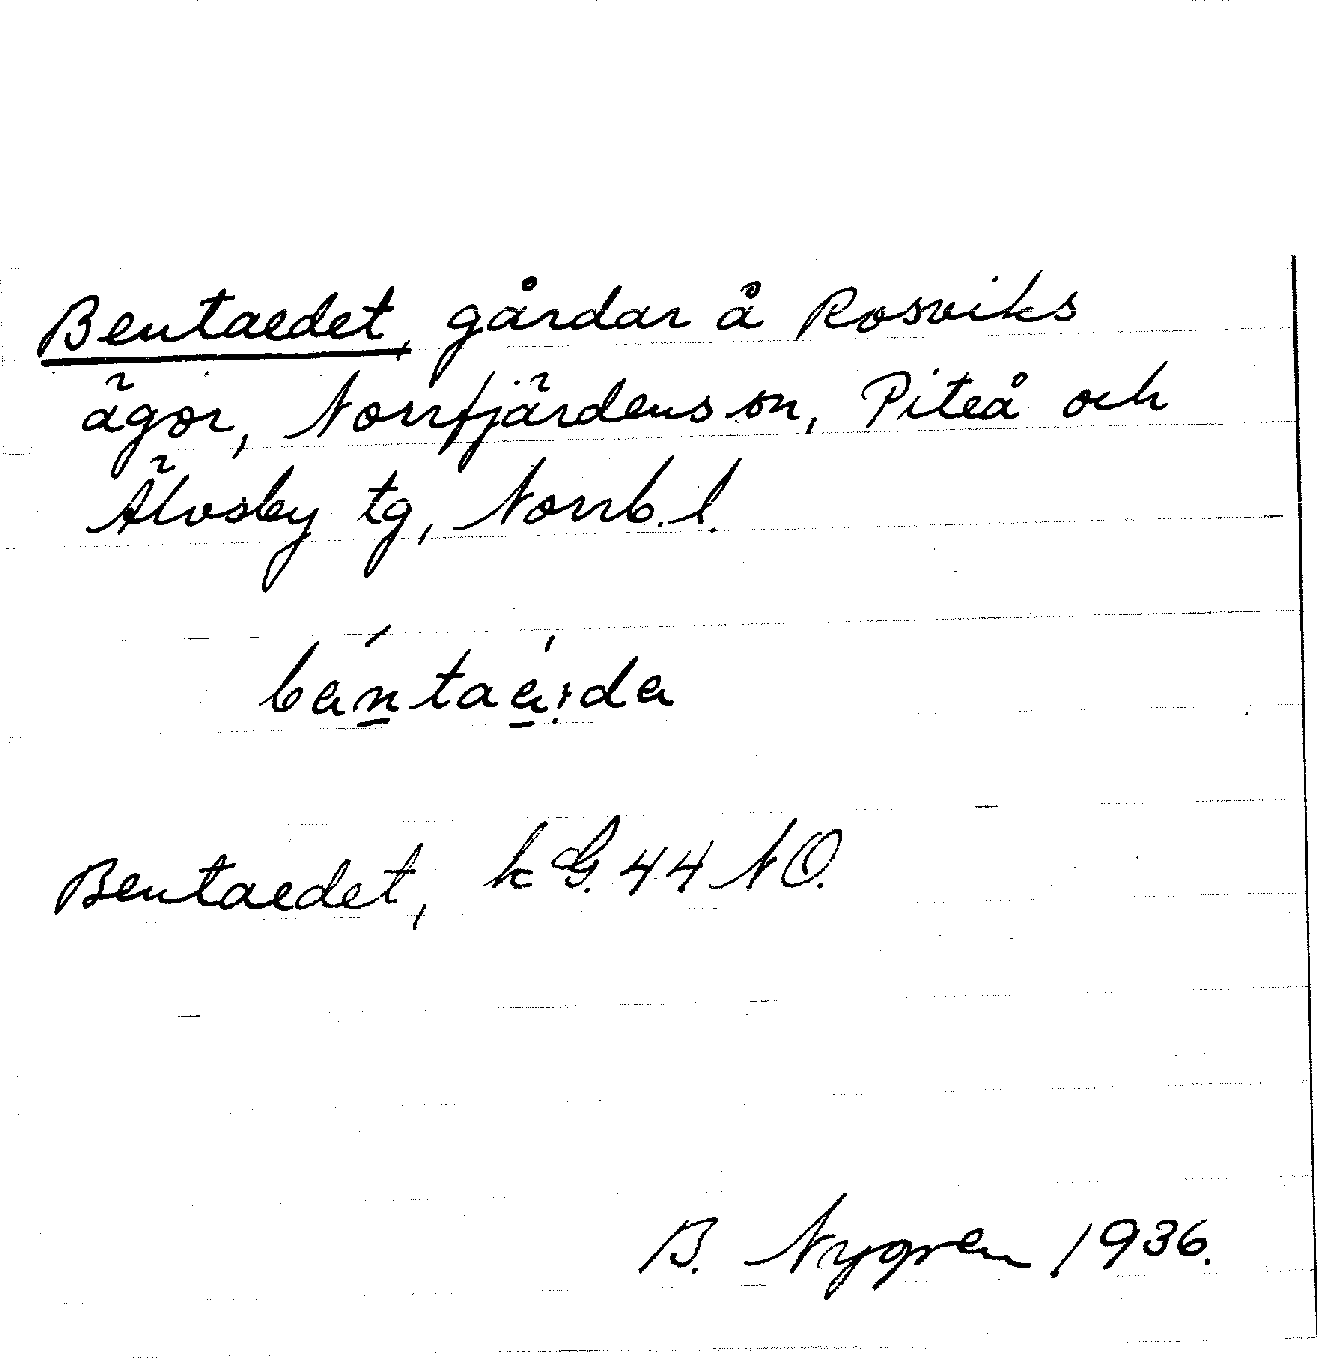 Bentaedet, gårdar å Rosviks
ägor, Norrfjärdens sn, Piteå och
Älvsby tg, Norrb. l.
bántaá:da
Bentaedet, k G. 44 NO.
B. Nygren 1936.